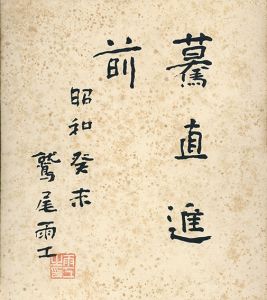 驀直進
前
昭和癸未
鷲尾雨工